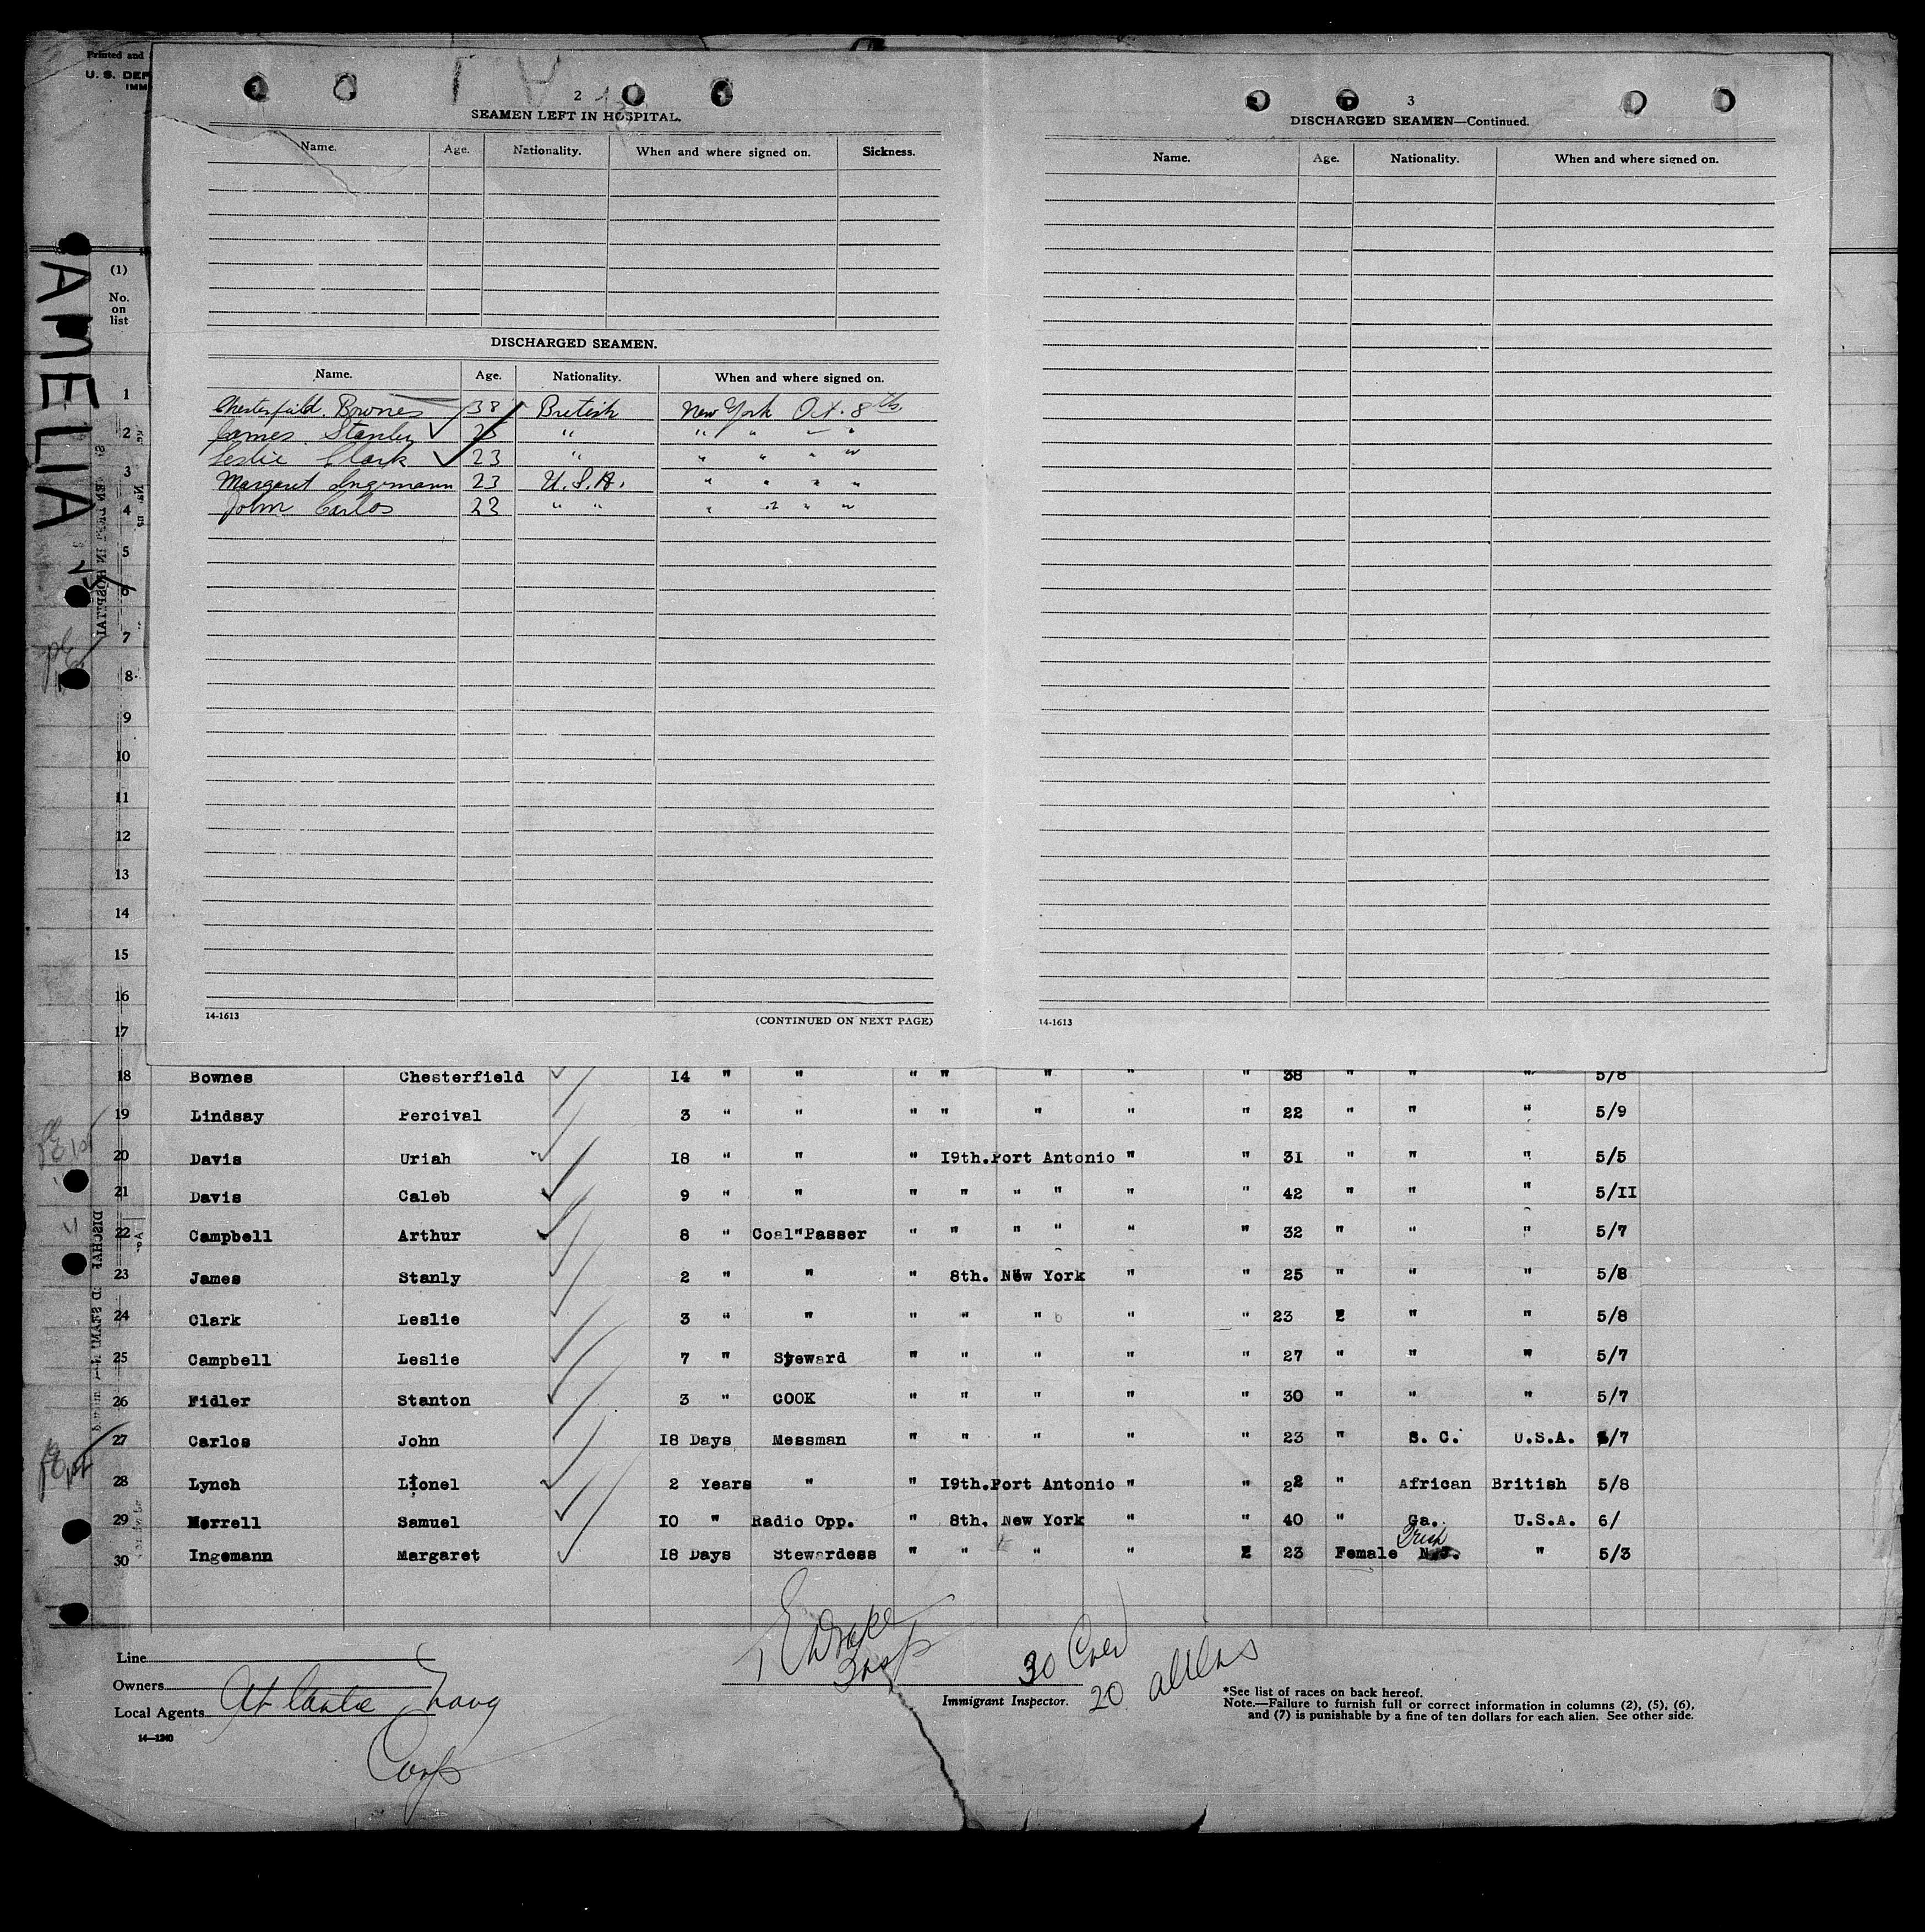 Printed and
U. S. DEP
IMM
2
SEAMEN LEFT IN HOSPITAL.
Name. Age. Nationality. When and where signed on. Sickness.
DISCHARGED SEAMEN.
Name. Age. Nationality. When and where signed on.
Chesterfield Bownes 38 British New York Oct. 8th
James Stanley 25 " " " " "
Leslie Clark 23 " " " " "
Margaret Ingemann 23 U.S.A. " " " "
John Carlos 23 " " " " " "
14-1613 (CONTINUED ON NEXT PAGE)
3
DISCHARGED SEAMEN—Continued.
Name. Age. Nationality. When and where signed on.
14-1613
AMELIA
(1)
No.
on
list
1
2
3
4
5
6
7
8
9
10
11
12
13
14
15
16
17
18 Bownes Chesterfield 14 " " " " " " " 38 " " " 5/8
19 Lindsay Percival 3 " " " " " " " 22 " " " 5/9
20 Davis Uriah 18 " " " 19th. Port Antonio " " 31 " " " 5/5
21 Davis Caleb 9 " " " " " " " " 42 " " " 5/11
22 Campbell Arthur 8 " Coal"Passer " " " " " " 32 " " " 5/7
23 James Stanly 2 " " " 8th. New York " " 25 " " " 5/8
24 Clark Leslie 3 " " " " " " " 23 " " " 5/8
25 Campbell Leslie 7 " Steward " " " " " 27 " " " 5/7
26 Fidler Stanton 3 " COOK " " " " " 30 " " " 5/7
27 Carlos John 18 Days Messman " " " " " 23 " S. C. U.S.A. 5/7
28 Lynch Lionel 2 Years " " 19th. Port Antonio " " 22 " African British 5/8
29 Merrell Samuel 10 " Radio Opp. " 8th. New York " " 40 " Ga. U.S.A. 6/
30 Ingemann Margaret 18 Days Stewardess " " " " 23 Female Irish " 5/3
Line
Owners
Local Agents Atlantic Navg
Corp
14—1240
Drake
Insp
Immigrant Inspector.
30 Crew
20 aliens
*See list of races on back hereof.
Note.—Failure to furnish full or correct information in columns (2), (5), (6),
and (7) is punishable by a fine of ten dollars for each alien. See other side.